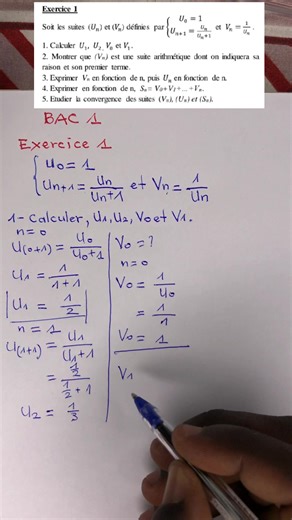 Exercice 1
Soit les suites (Uₙ) et (Vₙ) définies par { Uₙ = 1
Uₙ₊₁ = Uₙ/(Uₙ+1) et Vₙ = 1/Uₙ .
1. Calculer U₁, U₂, V₀ et V₁.
2. Montrer que (Vₙ) est une suite arithmétique dont on indiquera sa
raison et son premier terme.
3. Exprimer Vₙ en fonction de n, puis Uₙ en fonction de n.
4. Exprimer en fonction de n, Sₙ = V₀+V₁+...+Vₙ.
5. Etudier la convergence des suites (Vₙ), (Uₙ) et (Sₙ).
BAC 1
Exercice 1
{ U₀ = 1
Uₙ₊₁ = Uₙ/(Uₙ+1) et Vₙ = 1/Uₙ
1- Calculer, U₁, U₂, V₀ et V₁.
n = 0
U₍₀₊₁₎ = U₀/(U₀+1)
U₁ = 1/(1+1)
U₁ = 1/2
n = 1
U₍₁₊₁₎ = U₁/(U₁+1)
= (1/2)/(1/2 + 1)
U₂ = 1/3
V₀ = ?
n = 0
V₀ = 1/U₀
= 1/1
V₀ = 1
V₁